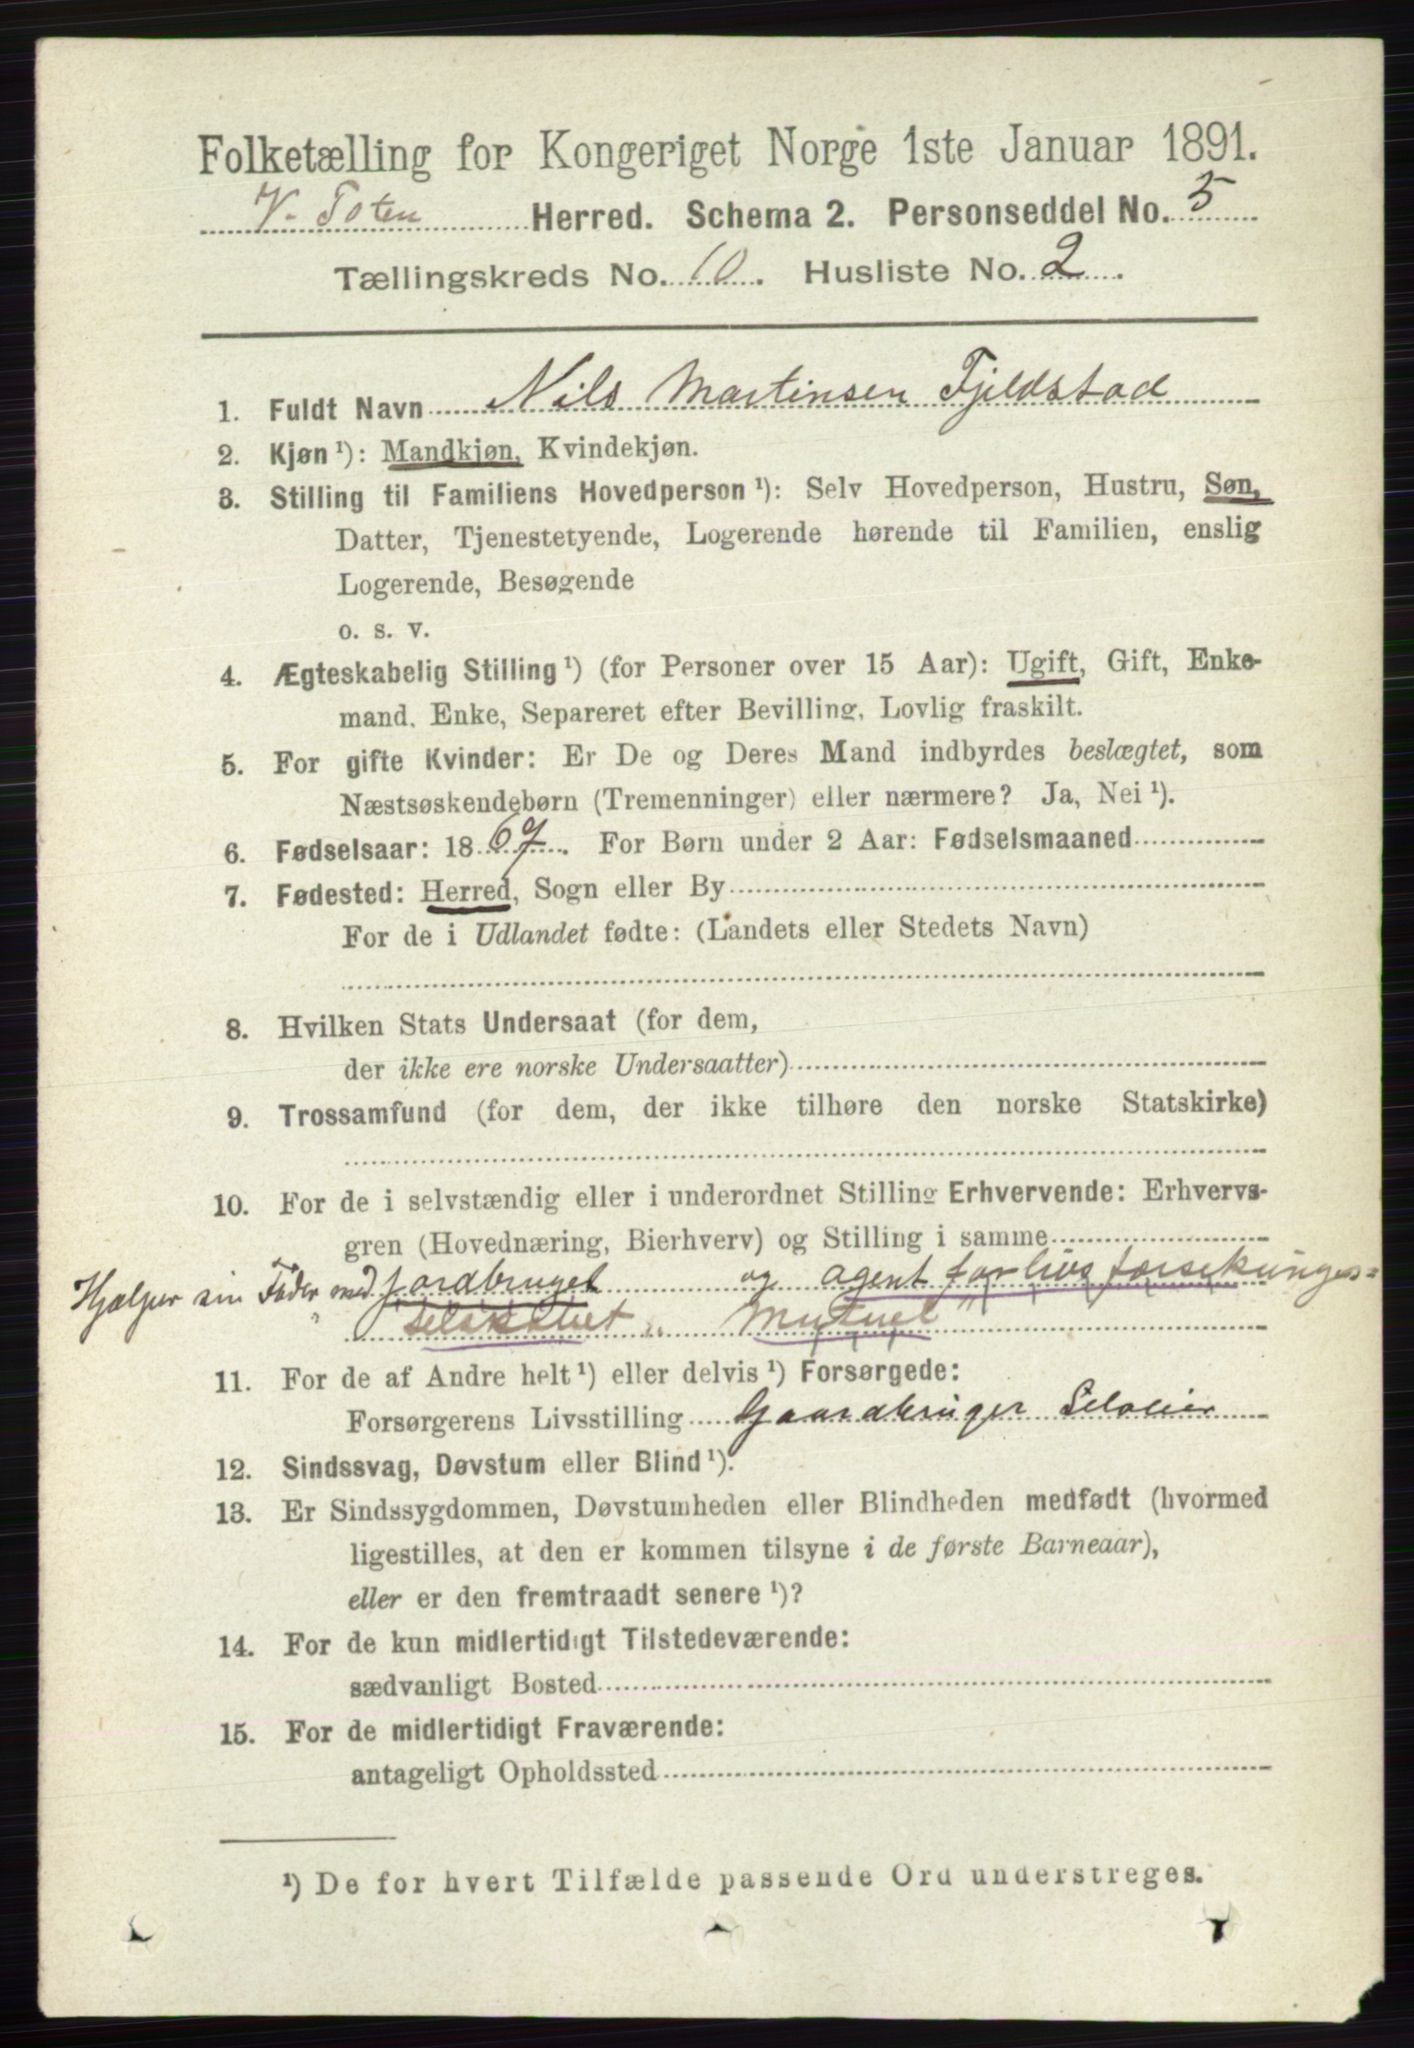 Folketælling for Kongeriget Norge 1ste Januar 1891.
V. Toten Herred. Schema 2. Personseddel No. 5
Tællingskreds No. 10. Husliste No. 2.
1. Fuldt Navn Nils Martinsen Fjeldstad
2. Kjøn ¹): Mandkjøn, Kvindekjøn.
3. Stilling til Familiens Hovedperson ¹): Selv Hovedperson, Hustru, Søn,
Datter, Tjenestetyende, Logerende hørende til Familien, enslig
Logerende, Besøgende
o. s. v.
4. Ægteskabelig Stilling ¹) (for Personer over 15 Aar): Ugift, Gift, Enke-
mand, Enke, Separeret efter Bevilling, Lovlig fraskilt.
5. For gifte Kvinder: Er De og Deres Mand indbyrdes beslægtet, som
Næstsøskendebørn (Tremenninger) eller nærmere? Ja, Nei ¹).
6. Fødselsaar: 1867. For Børn under 2 Aar: Fødselsmaaned
7. Fødested: Herred, Sogn eller By
For de i Udlandet fødte: (Landets eller Stedets Navn)
8. Hvilken Stats Undersaat (for dem,
der ikke ere norske Undersaatter)
9. Trossamfund (for dem, der ikke tilhøre den norske Statskirke)
10. For de i selvstændig eller i underordnet Stilling Erhvervende: Erhvervs-
gren (Hovednæring, Bierhverv) og Stilling i samme
Hjælper sin Fader med jordbruget og agent for livsforsikringes=
selskabet „Mutuel"
11. For de af Andre helt ¹) eller delvis ¹) Forsørgede:
Forsørgerens Livsstilling Gaardbruger Selveier
12. Sindssvag, Døvstum eller Blind ¹).
13. Er Sindssygdommen, Døvstumheden eller Blindheden medfødt (hvormed
ligestilles, at den er kommen tilsyne i de første Barneaar),
eller er den fremtraadt senere ¹)?
14. For de kun midlertidigt Tilstedeværende:
sædvanligt Bosted
15. For de midlertidigt Fraværende:
antageligt Opholdssted
¹) De for hvert Tilfælde passende Ord understreges.